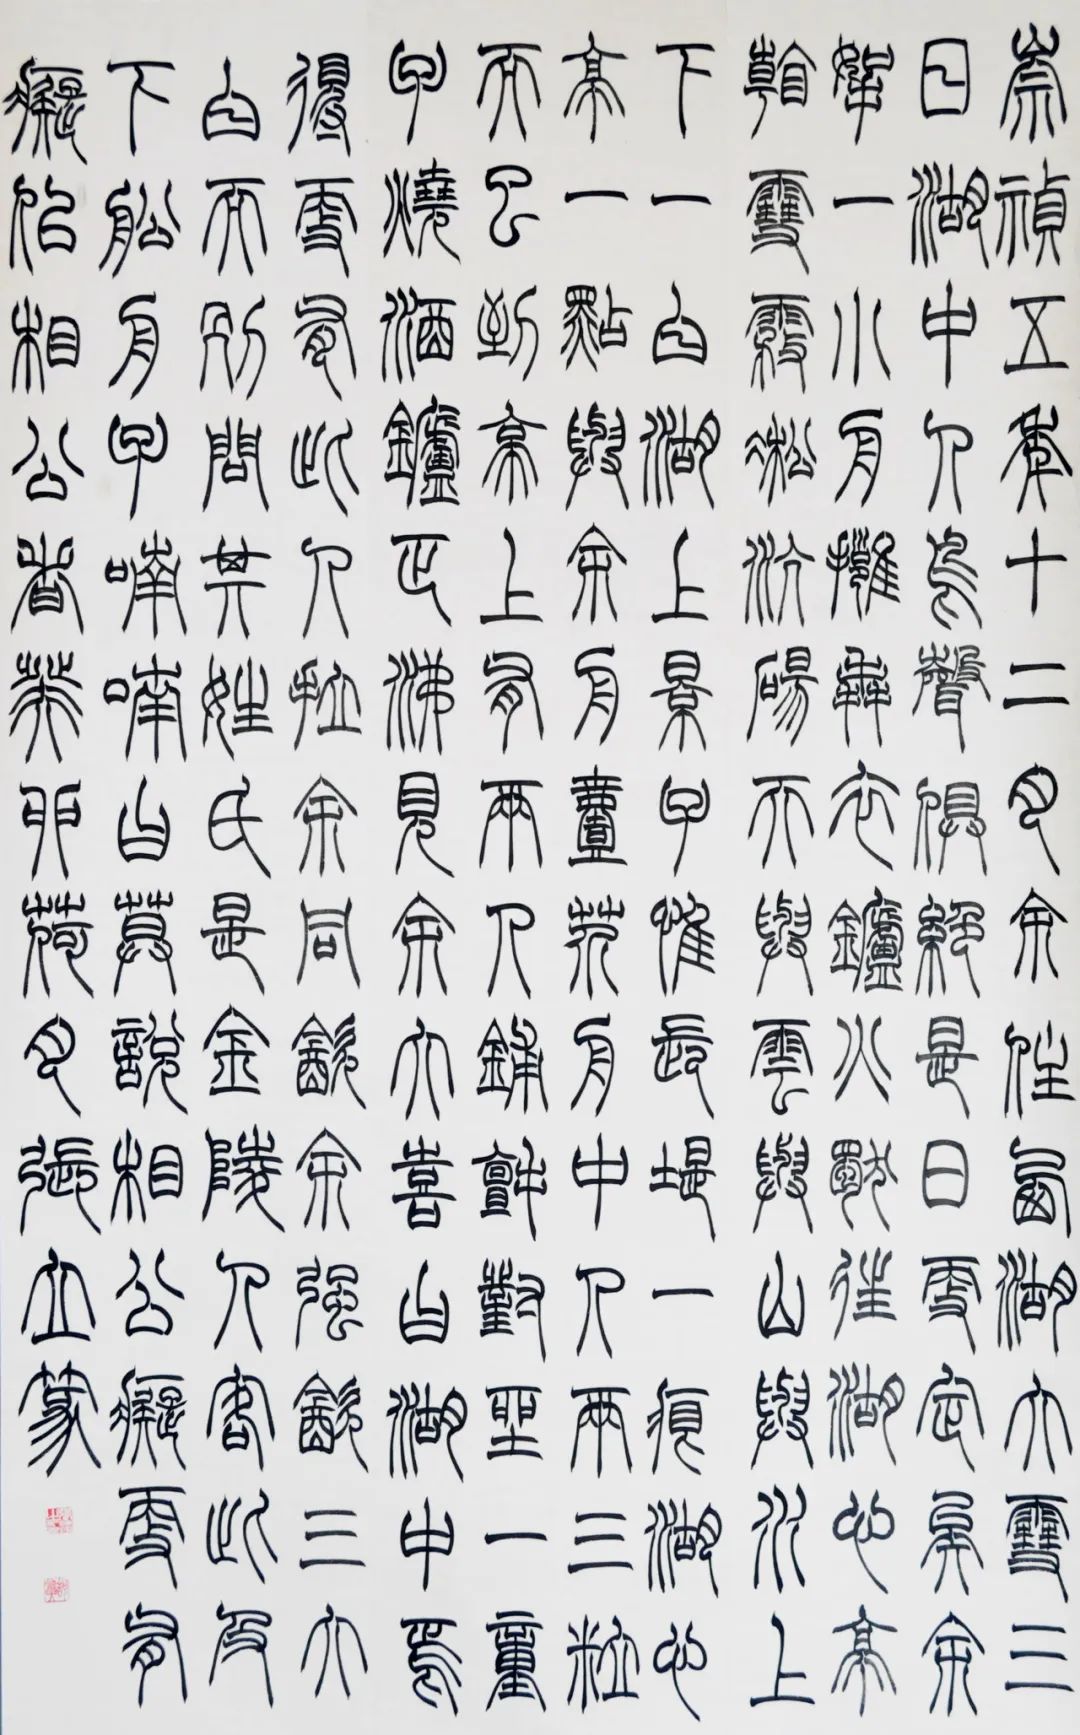 崇禎五年十二月余住西湖大雪三
日湖中人鳥聲俱絕是日更定矣余
拏一小舟擁毳衣爐火獨往湖心亭
看雪霧凇沆碭天與雲與山與水上
下一白湖上景子惟長堤一痕湖心
亭一點與余舟壹芥舟中人兩三粒
而已到亭上有兩人鋪氈對坐一童
子燒酒鑪正沸見余大喜曰湖中焉
得更有此人拉余同飲余強飲三大
白而別問其姓氏是金陵人客此及
下船舟子喃喃曰莫說相公癡更有
癡似相公者癸卯荷月張立篆